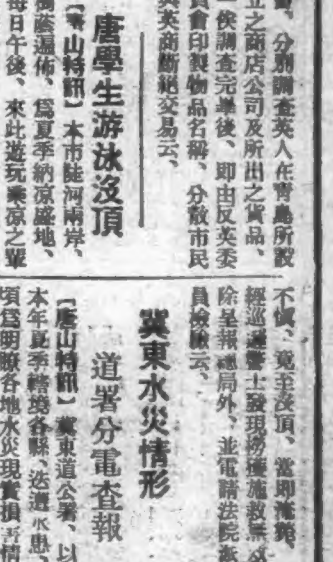 分別調查英人在青島所設
立之商店公司及所出之貨品、
一俟調查完畢後、即由反英委
員會印製物品名稱、分散市民
與英商斷絕交易云、
唐學生游泳沒頂
【唐山特訊】本市陡河兩岸、
樹蔭遍佈、爲夏季納涼盛地、
每日午後、來此遊玩乘涼之輩
不慎、竟至沒頂、當即淹斃、
經巡邏警士發現撈獲施救無效
除呈報總局外、並電請法院派
員檢驗云、
冀東水災情形
道署分電查報
【唐山特訊】冀東道公署、以
本年夏季轄境各縣、迭遭水患、
頃爲明瞭各地水災現實損害情